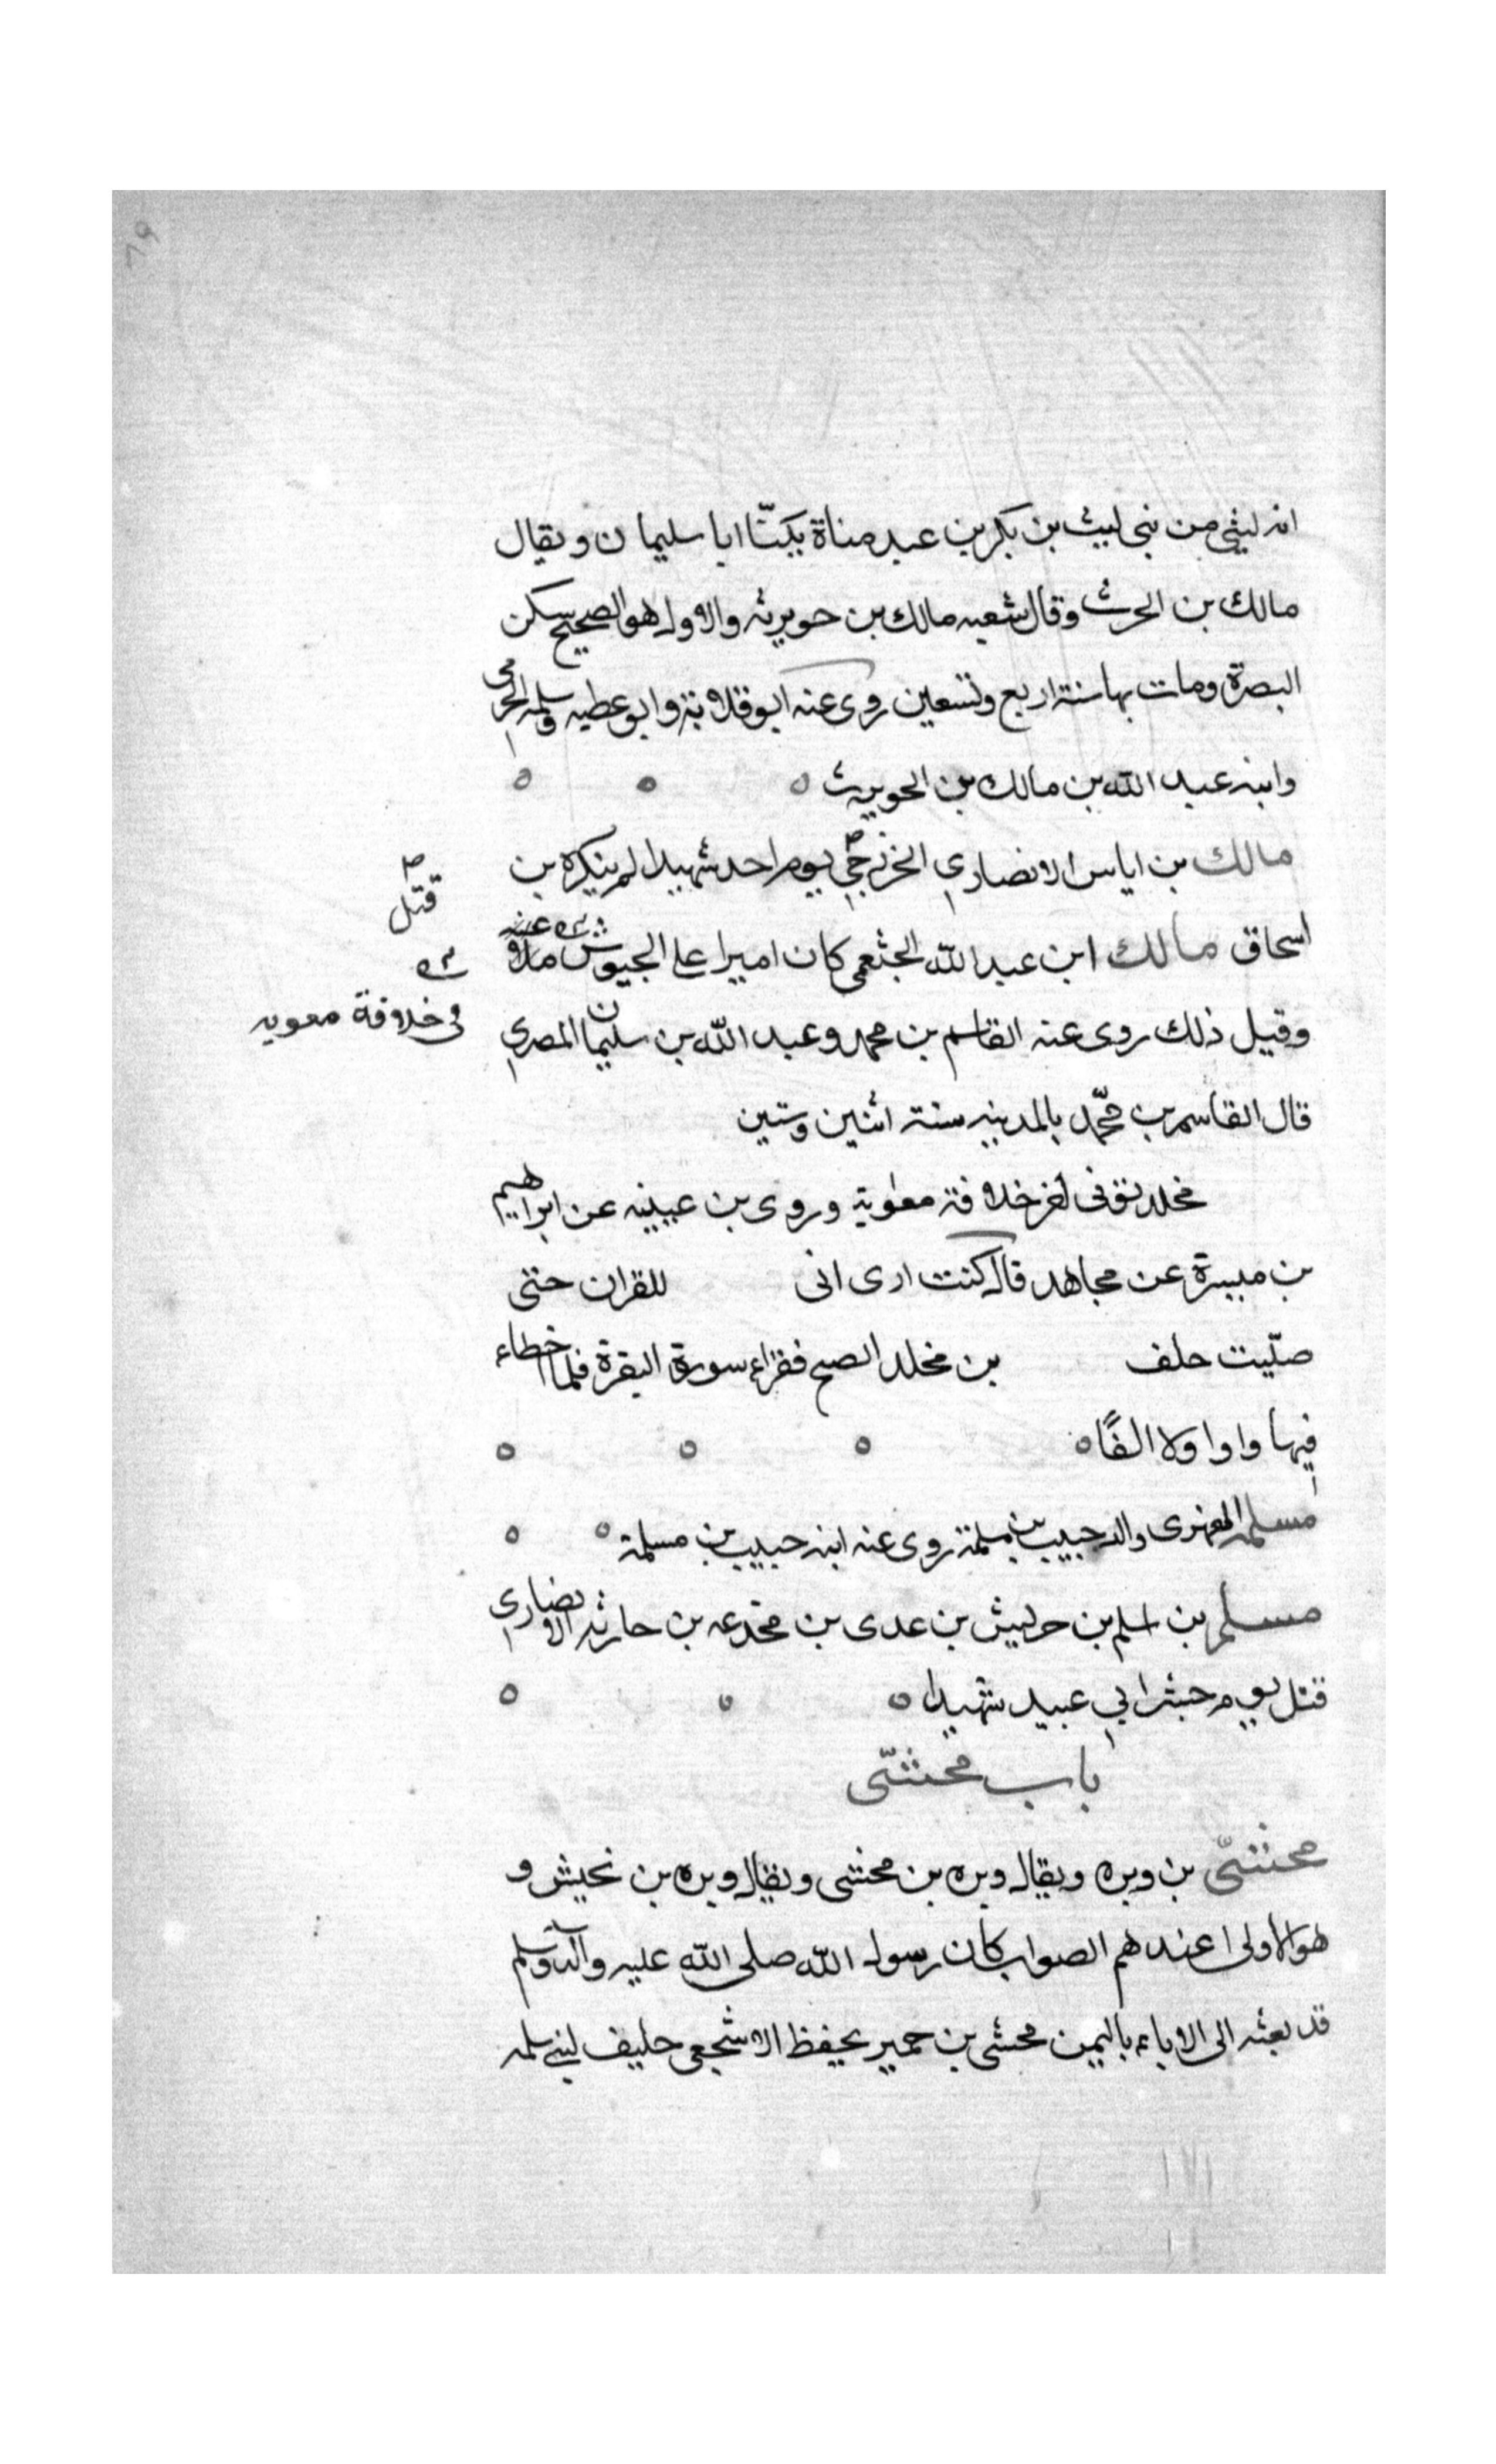 انه ليثي من بني ليث بن بكر بن عبد مناة يكنّا ابا سليمان ويقال
مالك بن الحرث وقال شعبه مالك بن حويرثه والاول هو الصحيح سكن
البصرة ومات بها سنة اربع وتسعين روى عنه ابو قلابة وابو عطيه وسلمه الجرمى
وابنه عبد الله بن مالك بن الحويرث
مالك بن اياس الانصاري الخزرجي يوم احد شهيدا لم يذكره بن
قتل
اسحاق مالك ابن عبد الله الخثعمى كان اميرا على الجيوش
فى خلافة معويه
وقيل ذلك روى عنه القاسم بن محمد وعبد الله بن سليمان المصري
قال القاسم بن محمّد بالمدينه سنة اثنين وستين
مخلد توفى اخر خلافة معاوية وروى بن عيينه عن ابراهيم
بن ميسرة عن مجاهد قال كنت ارى انى للقران حتى
صلّيت خلف بن مخلد الصبح فقراء سورة البقرة فلما اخطاء
فيها واوا ولا الفًا
مسلمه الفهرى والد حبيب بن مسلمة روى عنه ابنه حبيب بن مسلمة
مسلم بن اسلم بن حريش بن عدى بن مجدعه بن حارثه الانصاري
قتل يوم جسر ابي عبيد شهيدا
باب مخشّى
مخشّى بن وبره ويقال وبره بن مخشى ويقال وبره بن نحيش و
هو الاولى عندهم الصواب كان رسول الله صلى الله عليه وآله وسلم
قد بعثه الى الابناء باليمن مخشى بن حمير يحفظ الاشجعى حليف لبني سلمه